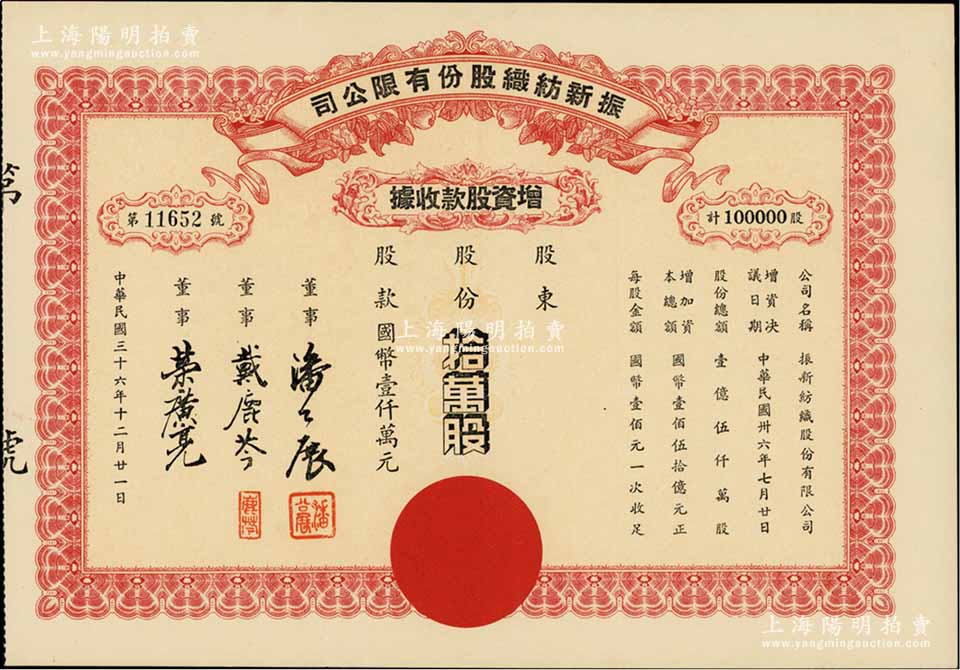 上海陽明拍賣
www.yangmingauction.com
振新紡織股份有限公司
增資股款收據
計100000股
第11652號
公司名稱 振新紡織股份有限公司
增資決議日期 中華民國卅六年七月廿日
股份總額 壹億伍仟萬股
增加資本總額 國幣壹佰伍拾億元正
每股金額 國幣壹佰元一次收足
股東
股份 拾萬股
股款國幣壹仟萬元
董事 潘公展
董事 戴鹿芩
董事 榮廣亮
中華民國三十六年十二月廿一日
第
號
上海陽明拍賣
www.yangmingauction.com
上海陽明拍賣
www.yangmingauction.com